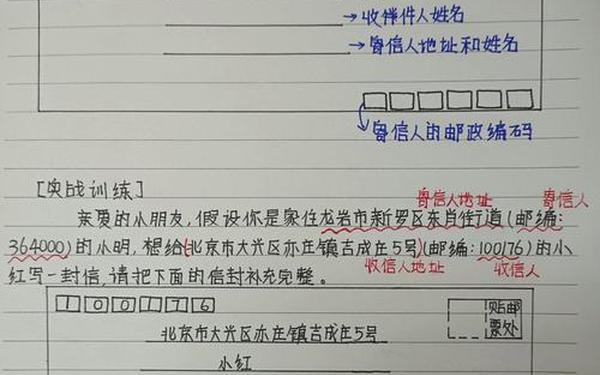 →收件人姓名
→寄信人地址和姓名
寄信人的邮政编码
[实战训练]
寄信人地址 寄信人
亲爱的小朋友,假设你是家住龙岩市新罗区东肖街道(邮编:
364000)的小明,想给(北京市大兴区亦庄镇吉成庄5号)(邮编:100176)的小
收信人地址 收信人
红写一封信,请把下面的信封补充完整。
100176
贴邮
票处
北京市大兴区亦庄镇吉成庄5号
小红